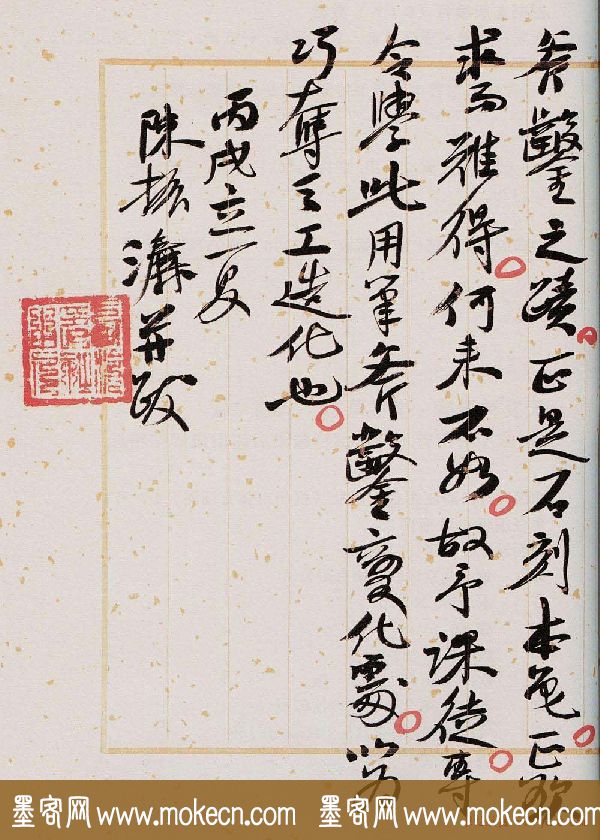 斧鑿之蹟正是石刻本色正
求而難得何来不好故予課徒專
令學此用筆斧鑿變化處以為
巧奪之工造化也
丙戌立夏
陳振濂并跋
墨客网 www.mokecn.com 墨客网 www.mokecn.com